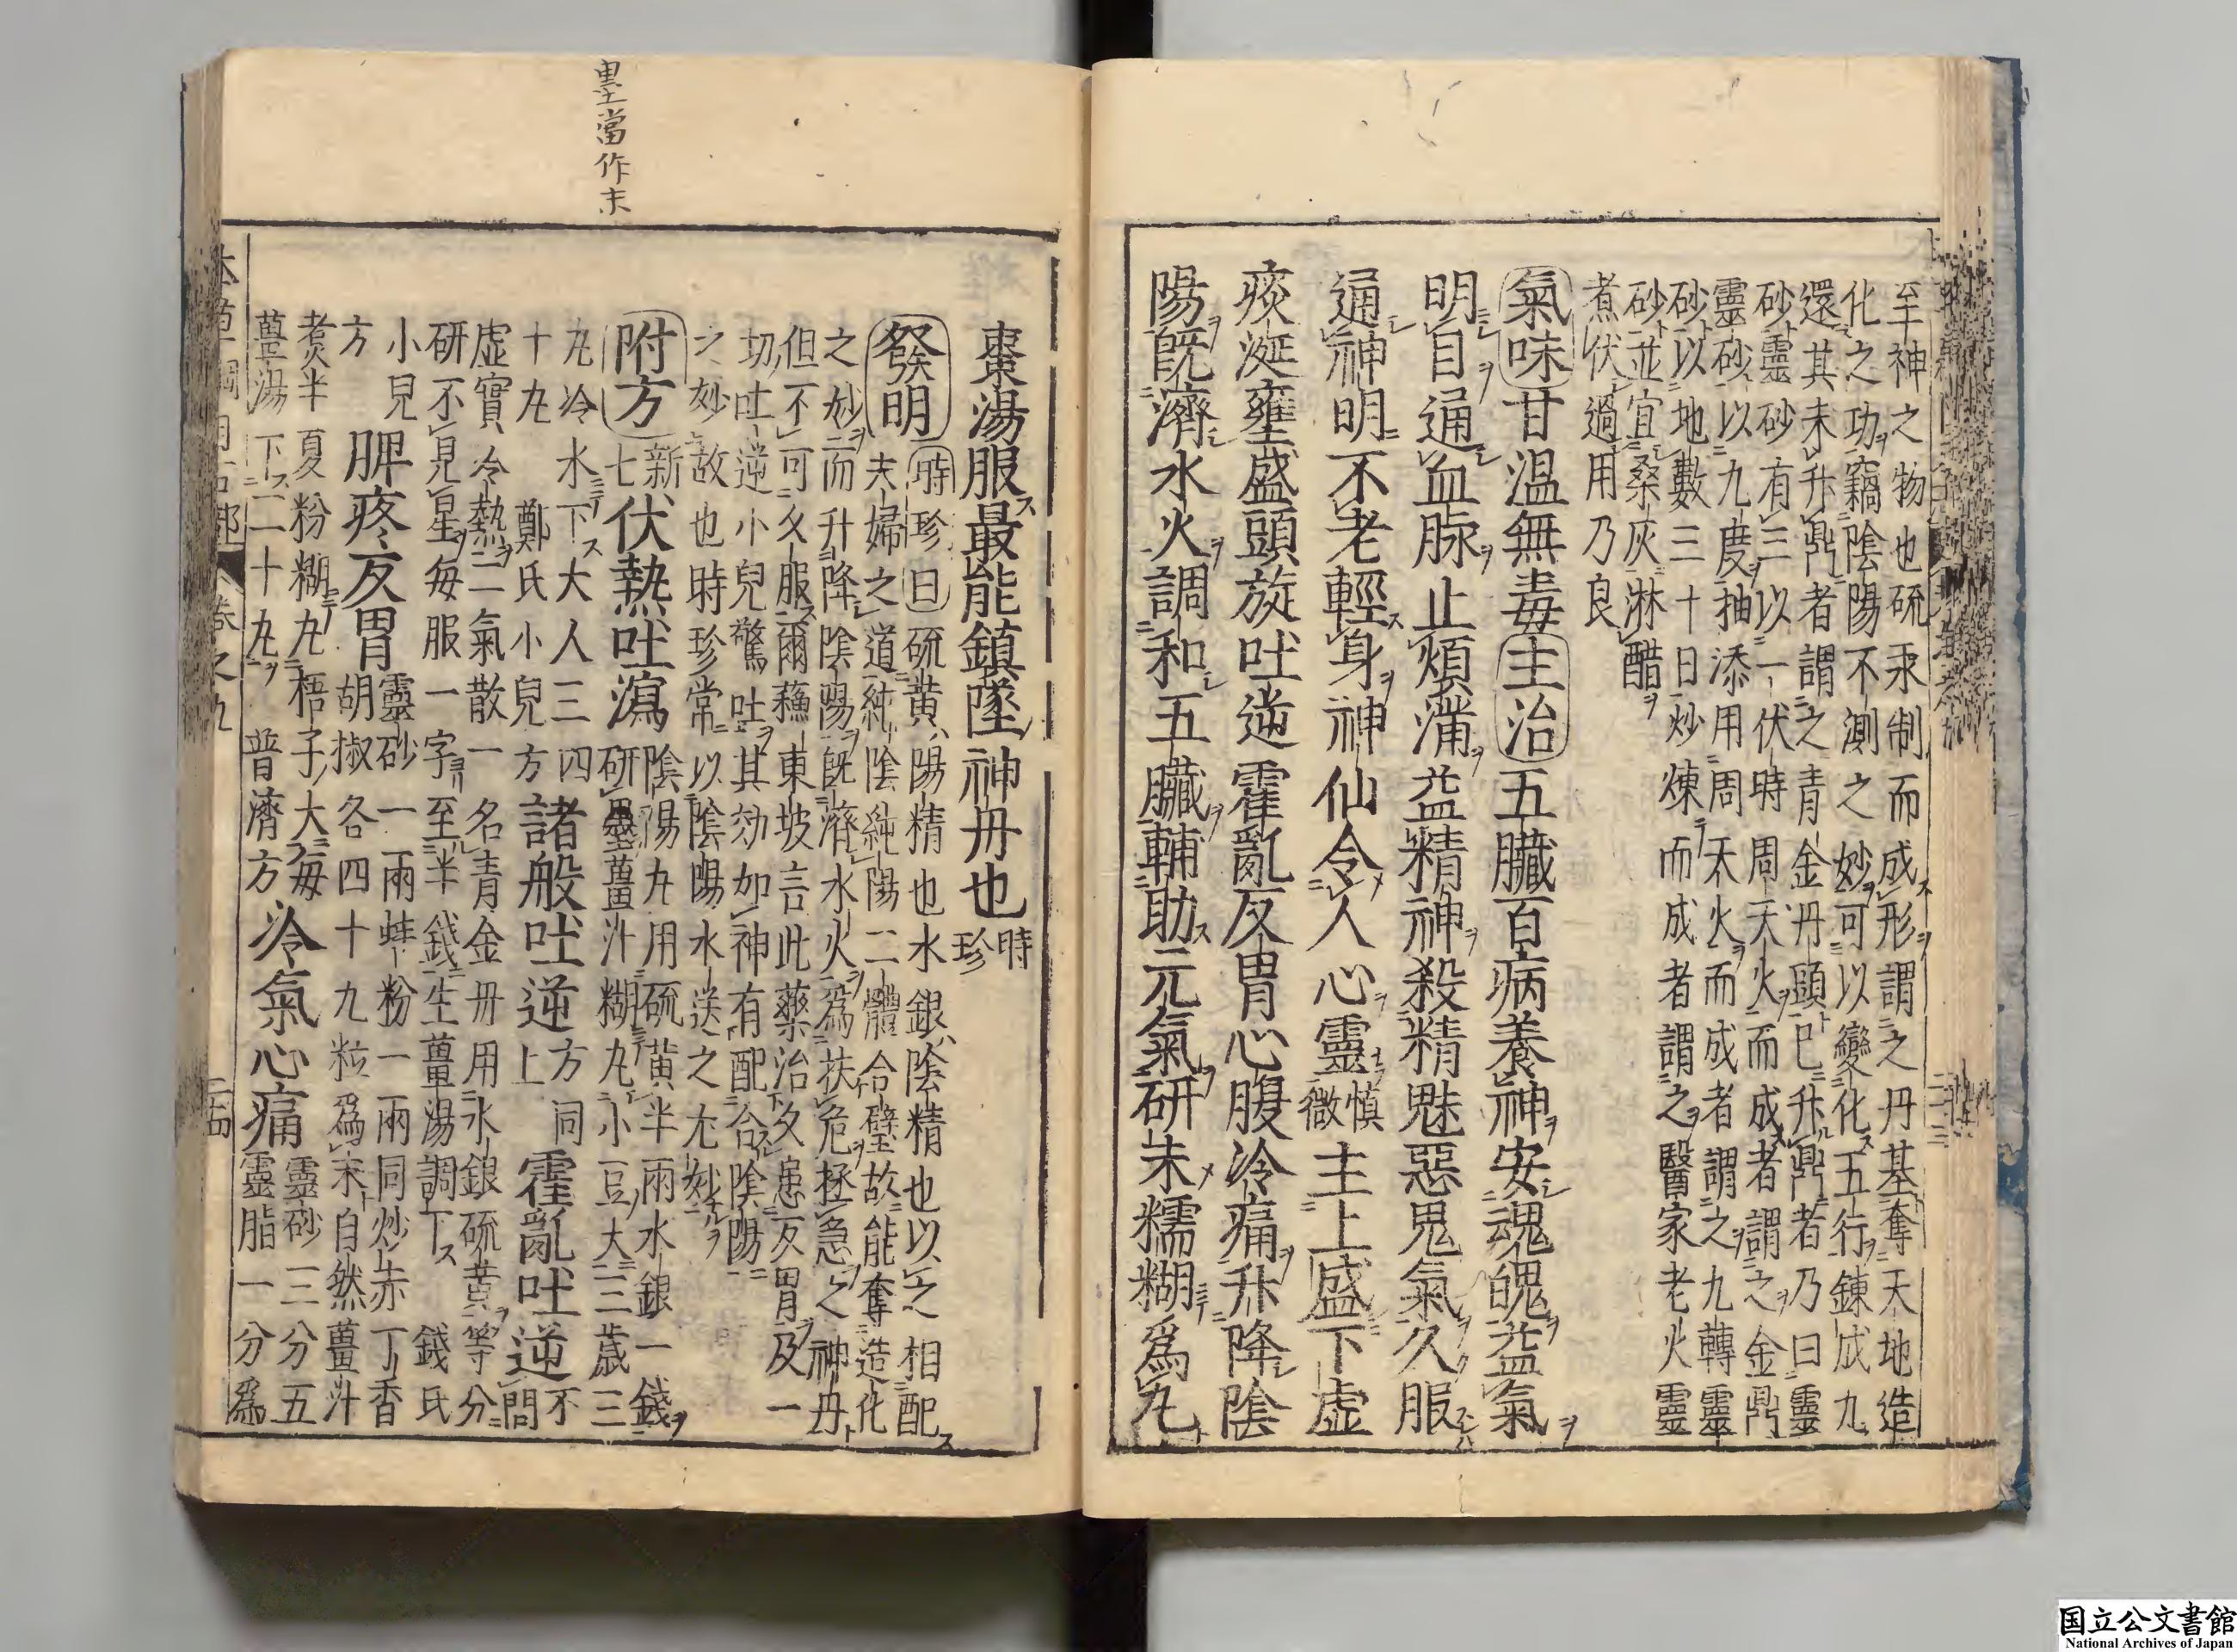 至神之物也硫汞制而成形謂之丹基奪天地造
化之功竊陰陽不測之妙可以變化五行鍊成九
還其未升鼎者謂之青金丹頭已升鼎者乃曰靈
砂靈砂有三以一伏時周天火而成者謂之金鼎
靈砂以九度抽添用周天火而成者謂之九轉靈
砂以地數三十日炒煉而成者謂之醫家老火靈
砂並宜桑灰淋醋
煮伏過用乃良
氣味甘溫無毒主治五臟百病養神安魂魄益氣
明目通血脉止煩滿益精神殺精魅惡鬼氣久服
通神明不老輕身神仙令人心靈慎微主上盛下虛
痰涎壅盛頭旋吐逆霍亂反胃心腹冷痛升降陰
陽既濟水火調和五臟輔助元氣研末糯糊爲丸
棗湯服最能鎮墜神丹也時珍
發明時珍曰硫黃陽精也水銀陰精也以之相配
夫婦之道純陰純陽二體合璧故能奪造化
之妙而升降陰陽既濟水火爲扶危拯急之神丹
但不可久服爾蘇東坡言此藥治久患反胃及一
切吐逆小兒驚吐其効如神有配合陰陽
之妙故也時珍常以陰陽水送之尤妙
附方新七伏熱吐瀉陰陽丸用硫黃半兩水銀一錢
研墨薑汁糊丸小豆大三歲三
丸冷水下大人三四
十丸 鄭氏小兒方諸般吐逆方同上霍亂吐逆不問
虛實冷熱二氣散一名青金丹用水銀硫黃等分
研不見星每服一字至半錢生薑湯調下 錢氏
小兒
方脾疼反胃靈砂一兩蚌粉一兩同炒赤丁香
胡椒各四十九粒爲末自然薑汁
煮半夏粉糊丸梧子大每
薑湯下二十丸 普濟方冷氣心痛靈砂三分五
靈脂一分爲
本草綱目石部 卷之九 二十四
墨當作末
国立公文書館
National Archives of Japan